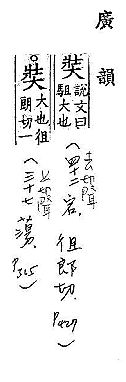 廣韻
奘 說文曰
駔大也
(四十二宕 徂郎切 P429)
去聲
奘 大也徂
朗切一
(三十七蕩 P315)
上聲